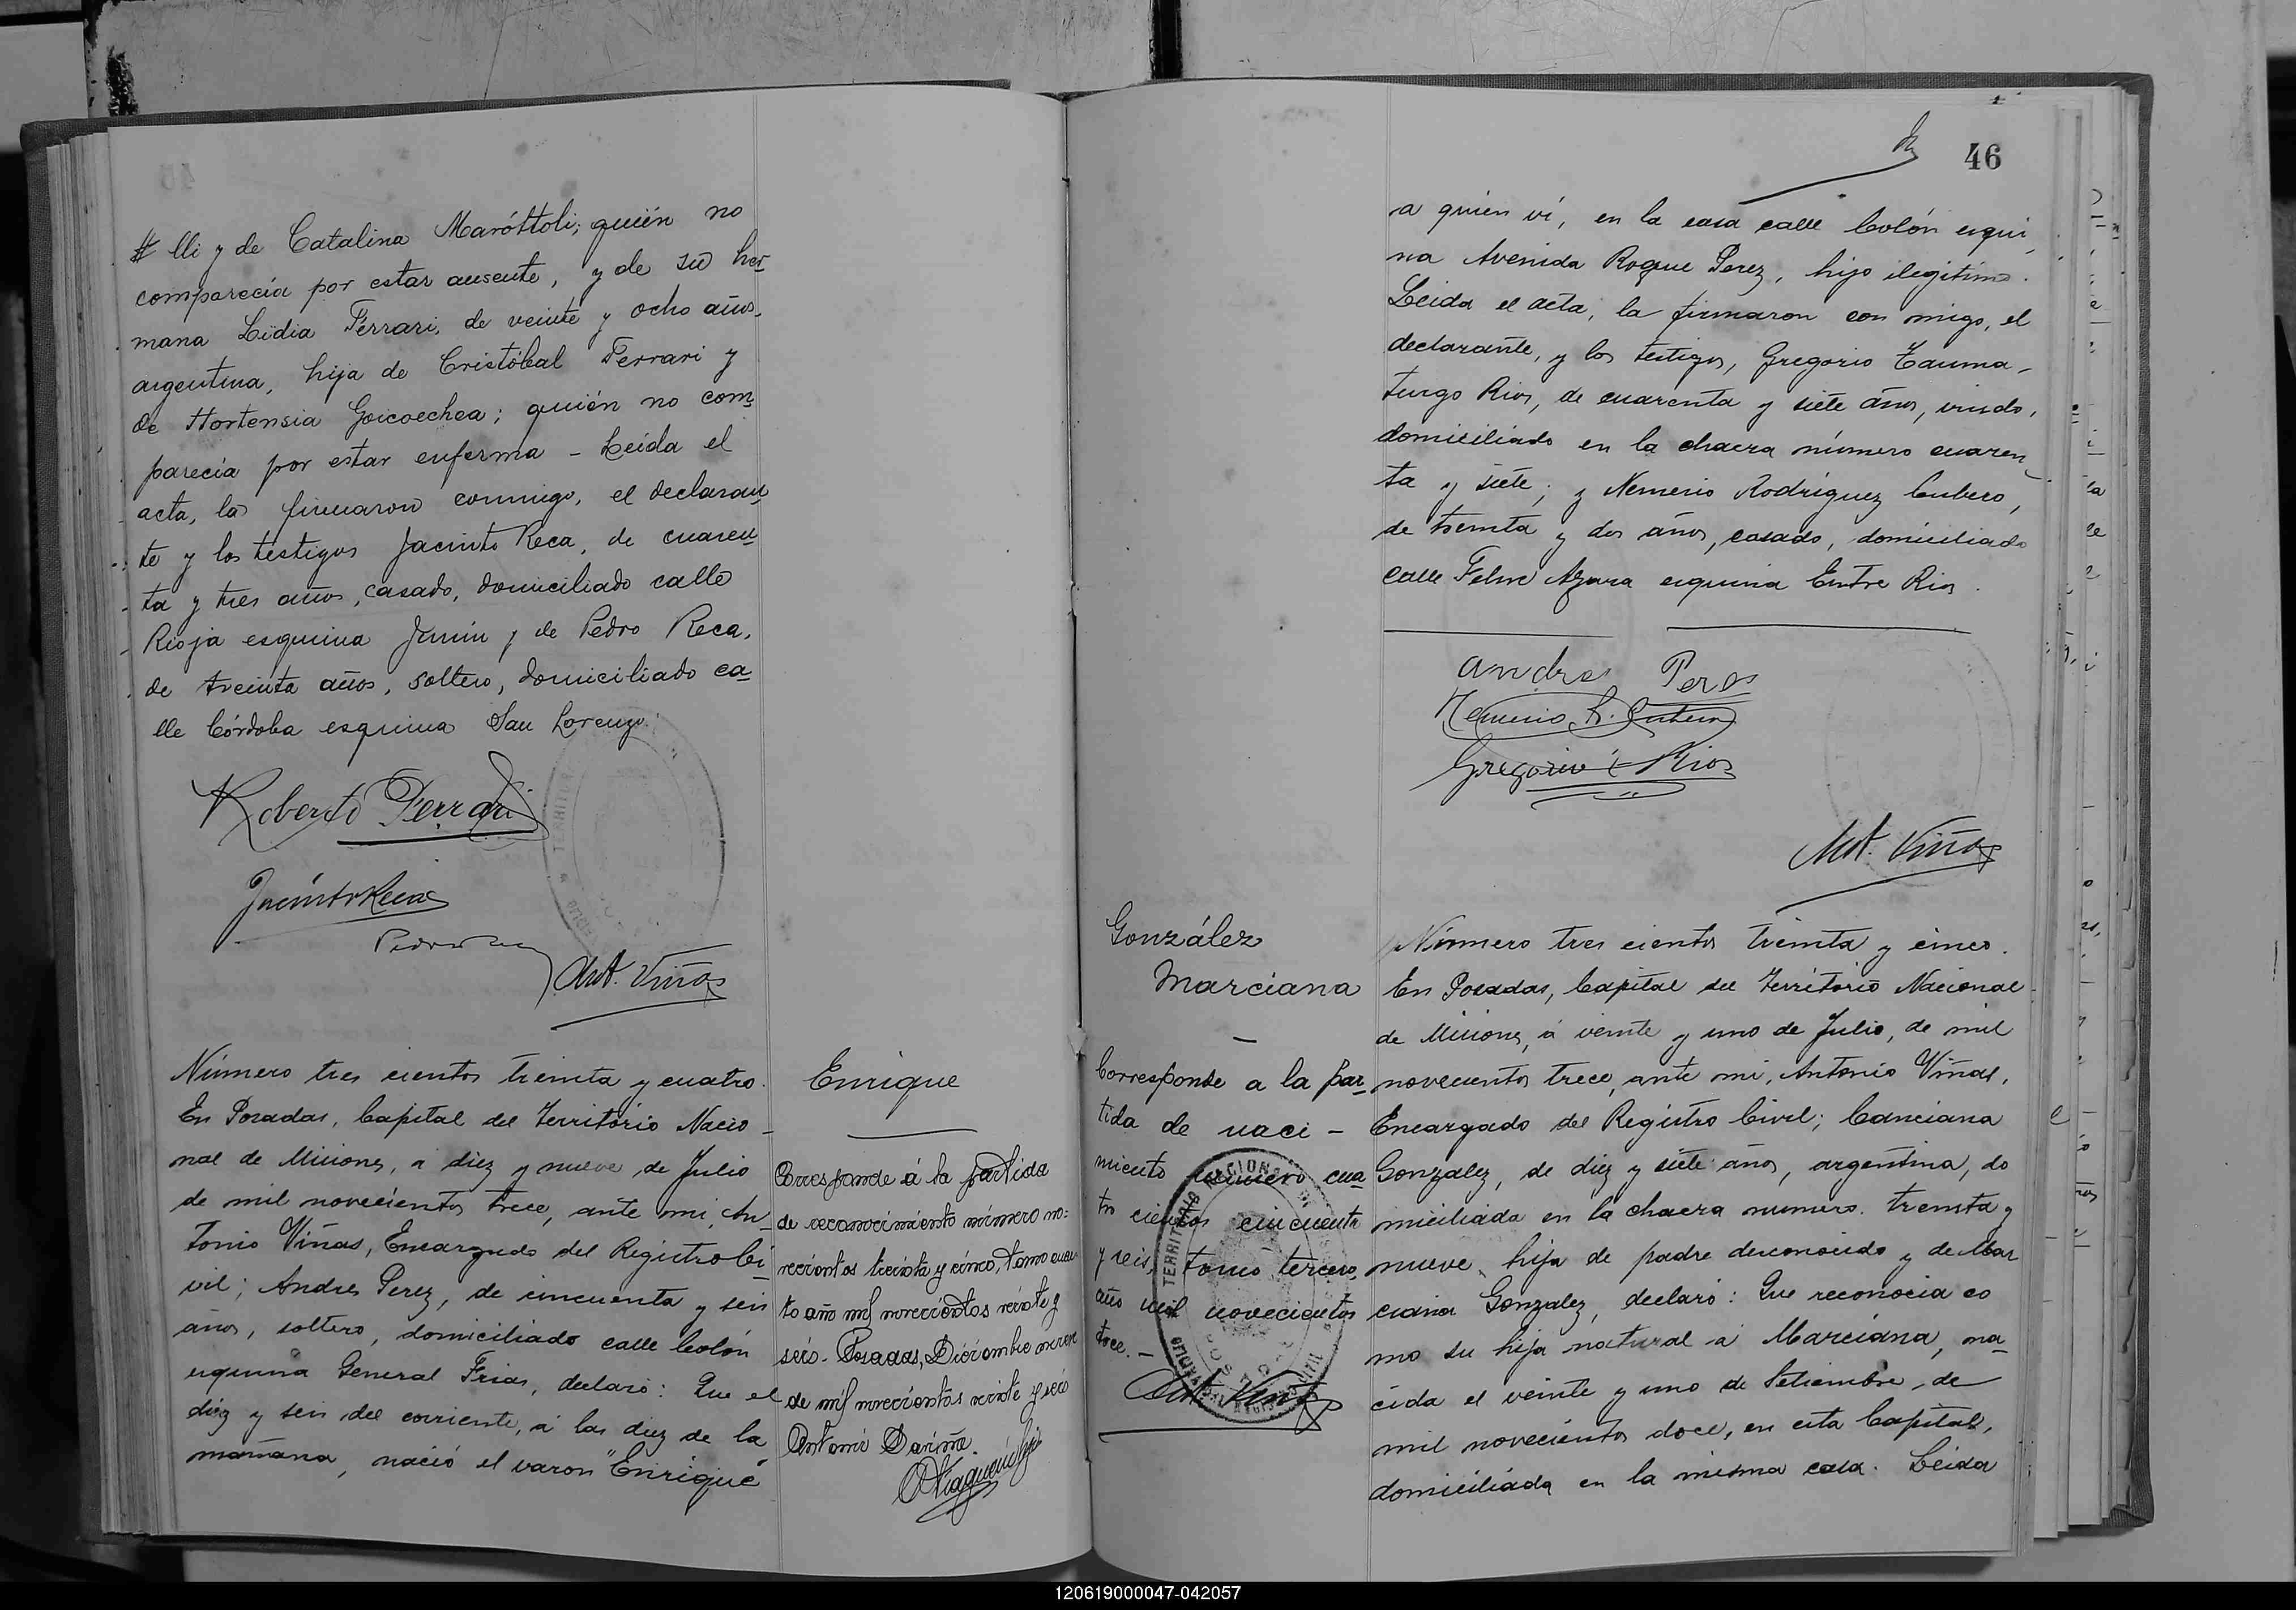 lli y de Catalina Maróttoli; quién no
comparecía por estar ausente, y de su her-
mana Lidia Ferrari, de veinte y ocho años,
argentina, hija de Cristóbal Ferrari y
de Hortensia Goicoechea; quién no com-
parecía por estar enferma – Leída el
acta, la firmaron conmigo, el declaran-
te y los testigos Jacinto Reca, de cuaren-
ta y tres años, casado, domiciliado calle
Rioja esquina Junín y de Pedro Reca,
de treinta años, soltero, domiciliado ca-
lle Córdoba esquina San Lorenzo.
Roberto Ferrari
Jacinto Reca
Pedro
Ant. Viñas
Número tres cientos treinta y cuatro.
En Posadas, Capital del Territorio Nacio-
nal de Misiones, á diez y nueve de Julio
de mil novecientos trece, ante mi, An-
tonio Viñas, Encargado del Registro Ci-
vil; Andres Perez, de cincuenta y seis
años, soltero, domiciliado calle Colón
esquina General Frias, declaró: Que el
diez y seis del corriente, á las diez de la
mañana, nació el varon "Enrique"
Enrique
Corresponde á la partida
de reconocimiento número no-
vecientos treinta y cinco, tomo cuar-
to año mil novecientos veinte y
seis. Posadas, Diciembre nueve
de mil novecientos veinte y seis
46
a quien ví, en la casa calle Colón esqui-
na Avenida Roque Perez, hijo ilegitimo.
Leida el acta, la firmaron con migo, el
declarante, y los testigos, Gregorio Tauma-
turgo Rios, de cuarenta y siete años, viudo,
domiciliado en la chacra número cuaren-
ta y siete; y Nemesio Rodriguez Cubero,
de treinta y dos años, casado, domiciliado
calle Felix Azara esquina Entre Rios.
Andres Peres
Nemesio R. Cubero
Gregorio T Rios
Ant. Viñas
González
Marciana
Corresponde a la par-
tida de naci-
miento número cua
tro cientos cincuenta
y seis, tomo tercero,
año mil novecientos
doce. –
Ant. Viñas
Número tres cientos treinta y cinco.
En Posadas, Capital del Territorio Nacional
de Misiones, á veinte y uno de Julio, de mil
novecientos trece, ante mi, Antonio Viñas,
Encargado del Registro Civil; Canciana
Gonzalez, de diez y siete años, argentina, do
miciliada en la chacra numero treinta y
nueve, hija de padre desconocido y de Mar
ciana Gonzalez, declaró: Que reconocia co
mo su hija natural á Marciana, na-
cida el veinte y uno de Setiembre, de
mil novecientos doce, en esta Capital,
domiciliada en la misma casa. Leida
120619000047-042057